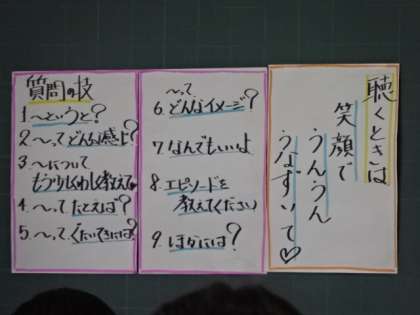 質問の技
1.〜というと?
2.〜ってどんな感じ?
3.〜について
もう少しくわしく教えて
4.〜ってたとえば?
5.〜ってぐたいてきには?
〜って
6.どんなイメージ?
7.なんでもいいよ
8.エピソードを
教えてください
9.ほかには?
聴くときは
笑顔で
うんうん
うなずいて♡